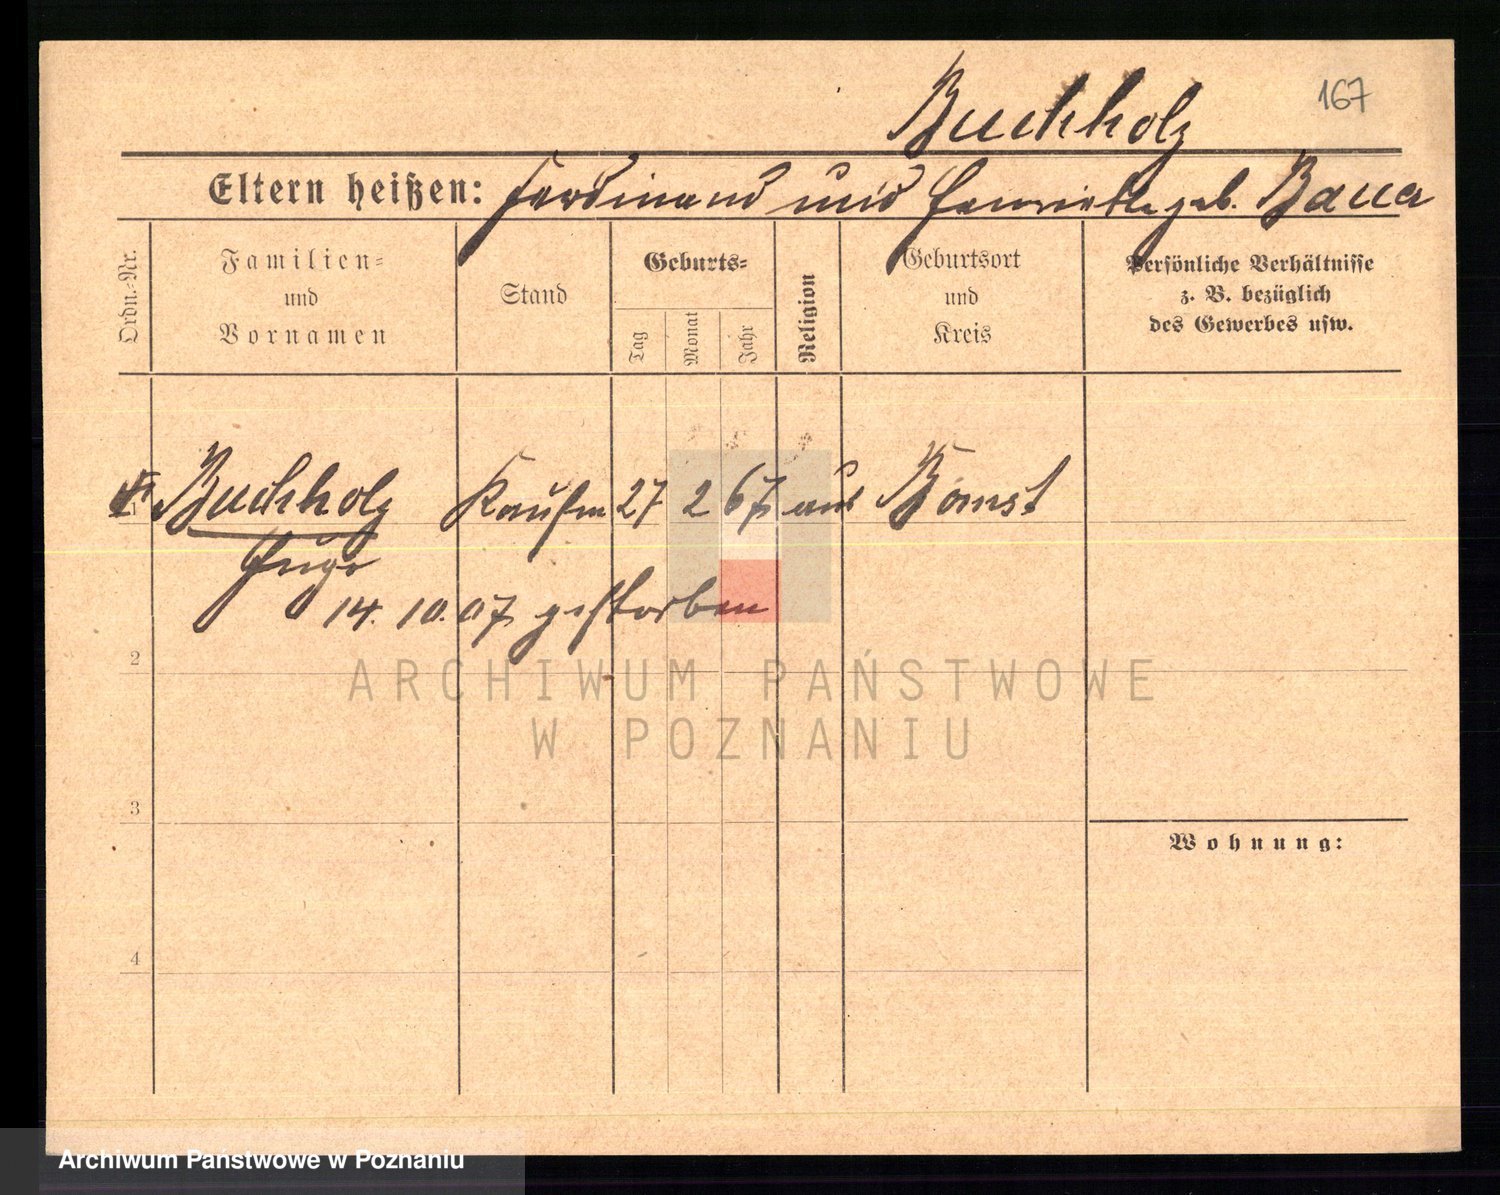 167
Buchholz
Eltern heißen: Ferdinand und Henriette geb. Bauer
Ordn.-Nr.
Familien- und Vornamen
Stand
Geburts-
Tag
Monat
Jahr
Religion
Geburtsort und Kreis
Persönliche Verhältnisse
z. B. bezüglich
des Gewerbes usw.
Buchholz Kaufm 27 2 67 aus Bomst
Hugo
14. 10. 07 gestorben
2
ARCHIWUM PAŃSTWOWE
W POZNANIU
3
Wohnung:
4
Archiwum Państwowe w Poznaniu